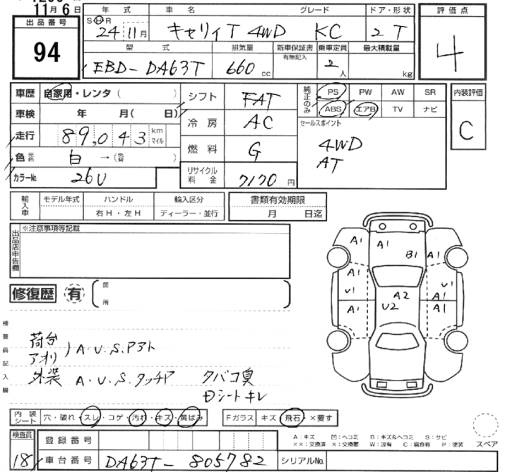 11月6日
出品番号
94
年式 車名 グレード ドア・形状
S H 24年11月 キャリィT 4WD KC 2 T
型式 排気量 新車保証書 有無記入 乗車定員 最大積載量
EBD-DA63T 660cc 2人 kg
評価点
4
車歴 自家用・レンタ( )
車検 年 月( 日)
走行 89,043 km マイル
色 白→( )
カラーNo. 26U
シフト FAT
冷房 AC
燃料 G
リサイクル料金 7170円
純正のみ PS PW AW SR
ABS エアB TV ナビ
セールスポイント
4WD
AT
内装評価
C
輸入車 モデル年式 ハンドル 輸入区分
右H・左H ディーラー・並行
書類有効期限
月 日迄
出品店申告欄 ※注意事項等記載
修復歴 有 箇所
検査員記入欄
荷台
アオリ )A・U・S・Pアト
外装 A・U・S・タッチア タバコ臭
Dシートキレ
A1 A1 B1 A1
V1 A2 V1
A1 U2 A1
内装シート 穴・破れ・スレ・コゲ・汚れ・キズ・黄ばみ
Fガラス キズ・飛石・×要す
A:キズ 凹:ヘコミ B:キズ&ヘコミ S:サビ
××:交換済 ×:交換要 W:波有 C:腐食有 P:塗装
スペア
検査員 18
登録番号
車台番号 DA63T-805782
シリアルNo.